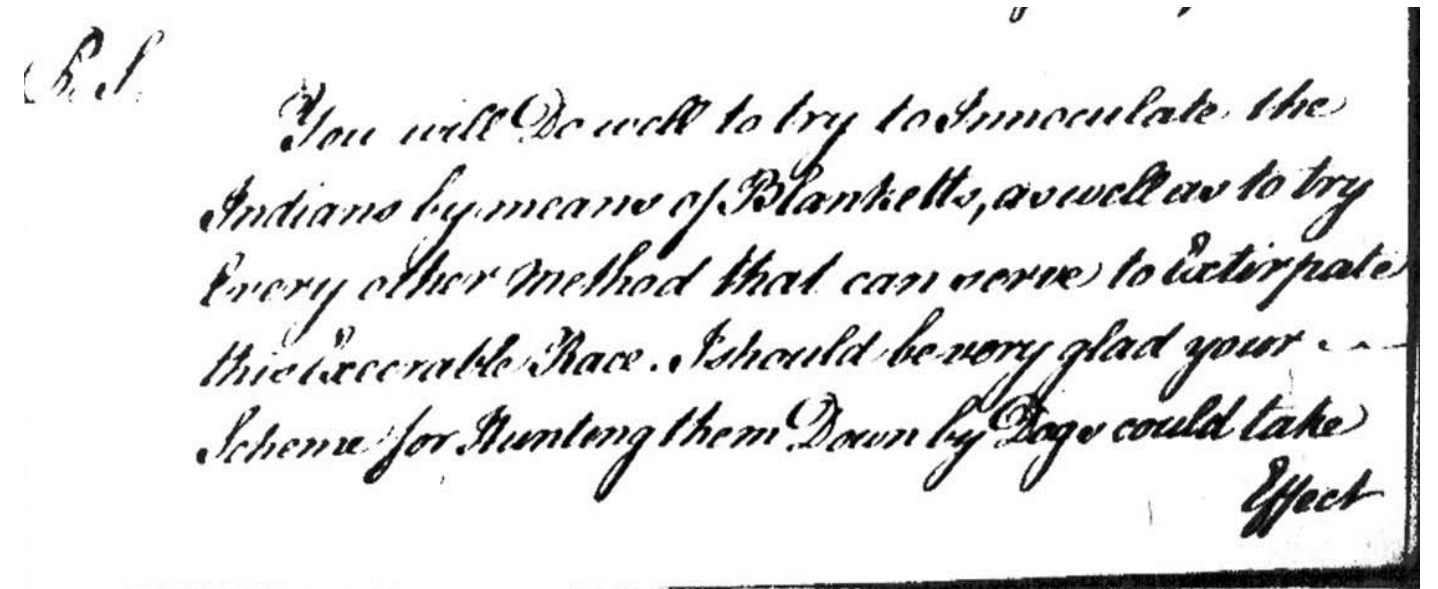 P.S.
You will Do well to try to Innoculate the
Indians by means of Blanketts, as well as to try
Every other method that can serve to Extirpate
this Execrable Race. I should be very glad your
Scheme for Hunting them Down by Dogs could take
Effect